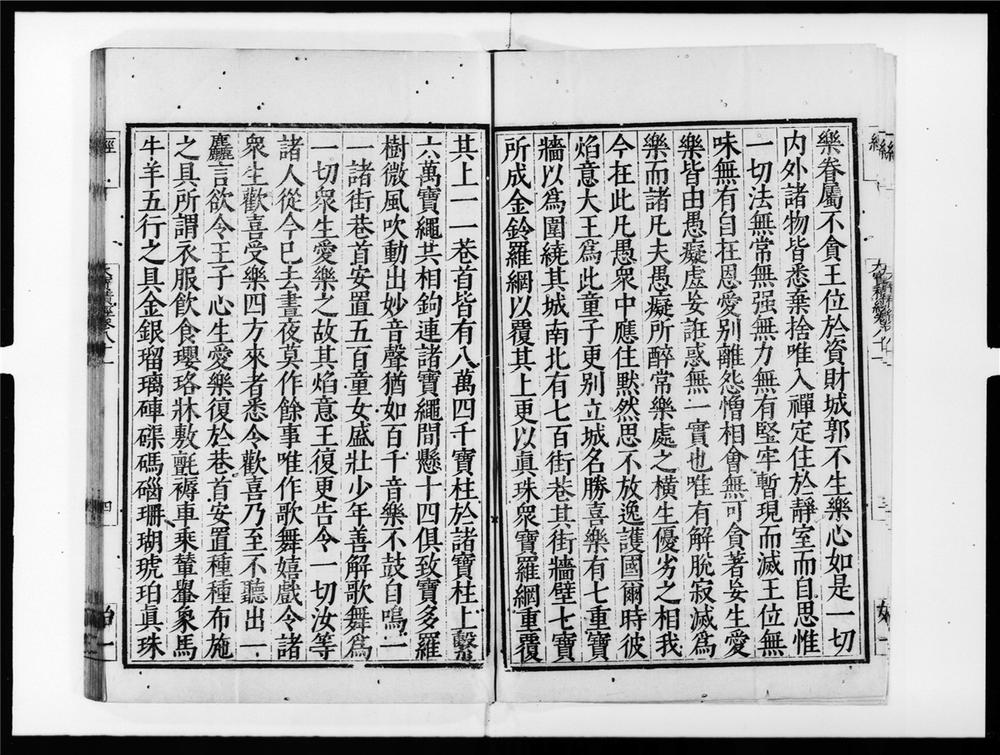 樂眷屬不貪王位於資財城郭不生樂心如是一切
内外諸物皆悉棄捨唯入禪定住於靜室而自思惟
一切法無常無强無力無有堅牢暫現而滅王位無
味無有自在恩愛別離怨憎相會無可貪著妄生愛
樂皆由愚癡虛妄誑惑無一實也唯有解脫寂滅爲
樂而諸凡夫愚癡所醉常樂處之橫生優劣之相我
今在此凡愚衆中應住默然思不放逸護國爾時彼
焰意大王爲此童子更別立城名勝喜樂有七重寶
牆以爲圍繞其城南北有七百街巷其街牆壁七寶
所成金鈴羅網以覆其上更以眞珠衆寶羅網重覆
其上一一巷首皆有八萬四千寶柱於諸寶柱上繫
六萬寶繩共相鉤連諸寶繩間懸十四俱致寶多羅
樹微風吹動出妙音聲猶如百千音樂不鼓自鳴一
一諸街巷首安置五百童女盛壯少年善解歌舞爲
一切衆生愛樂之故其焰意王復更告令一切汝等
諸人從今已去晝夜莫作餘事唯作歌舞嬉戲令諸
衆生歡喜受樂四方來者悉令歡喜乃至不聽出一
麤言欲令王子心生愛樂復於巷首安置種種布施
之具所謂衣服飲食瓔珞牀敷氈褥車乘輦轝象馬
牛羊五行之具金銀瑠璃硨磲碼碯珊瑚琥珀眞珠